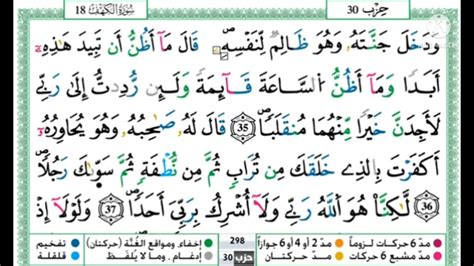 حِزْب 30 سُورَةُ الكَهْف 18
وَدَخَلَ جَنَّتَهُۥ وَهُوَ ظَالِمٌ لِّنَفْسِهِۦ قَالَ مَآ أَظُنُّ أَن تَبِيدَ هَٰذِهِۦٓ
أَبَدًا وَمَآ أَظُنُّ اُ۬لسَّاعَةَ قَآئِمَةً وَلَئِن رُّدِدتُّ إِلَىٰ رَبِّي
لَأَجِدَنَّ خَيْرًا مِّنْهُمَا مُنقَلَبًا 35 قَالَ لَهُۥ صَاحِبُهُۥ وَهُوَ يُحَاوِرُهُۥٓ
أَكَفَرْتَ بِالذِے خَلَقَكَ مِن تُرَابٍ ثُمَّ مِن نُّطْفَةٍ ثُمَّ سَوَّىٰكَ رَجُلًا
36 لَّٰكِنَّا هُوَ اَ۬للَّهُ رَبِّي وَلَآ أُشْرِكُ بِرَبِّيَ أَحَدًا 37 وَلَوْلَآ إِذ
مدّ 6 حركات لزوماً مدّ 2 أو 4 أو 6 جوازاً 298 إخفاء ومواقع الغُنَّة (حركتان) تفخيم
مدّ مشبع 6 حركات مدّ حركتان حزب 30 إدغام ، وما لا يُلفَظ قلقلة